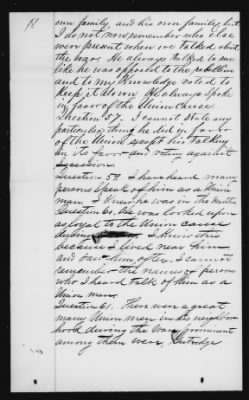 18
own family, and his own families, but
I do not now remember who else
were present when we talked about
the war. He always talked to me
like he was opposed to the rebellion
and to my knowledge voted to
Keep it down He always spoke
in favor of the Union Cause
Question 57. I cannot state any
particular thing he did in favor
of the Union except his talking
in its favor and voting against
Secession.
Question 59. I have heard many
persons speak of him as a Union
man. I knew he was in the
Question 60. He was looked upon
as loyal to the Union cause
during I know this
because I lived near him
and saw him often. I cannot
remember the names of persons
who I heard talk of him as a
Union man.
Question 61. There were a great
many Union men in his neighbor
hood during the war, prominent
among them were,